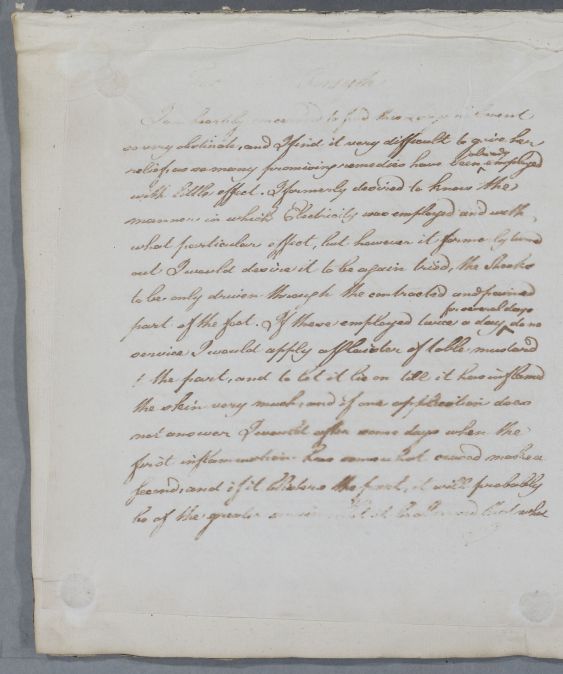 For
I am heartily concerned to find this complaint
so very obstinate, and I find it very difficult to give her
relief, as so many promising remedies have been already employed
with little effect. I formerly desired to know the
manner in which Electricity was employed and with
what particular effect, but however it formerly turned
out I would desire it to be again tried, the Shocks
to be only driven through the contracted and pained
part of the foot. If these employed twice a day for several days do no
service I would apply a Plaister of table mustard
to the part, and to let it lie on till it has inflamed
the skin very much, and if one application does
not answer I would after some days when the
first inflammation has somewhat ceased make a
second, and if it blisters the part, it will probably
be of the greater service but it be that what